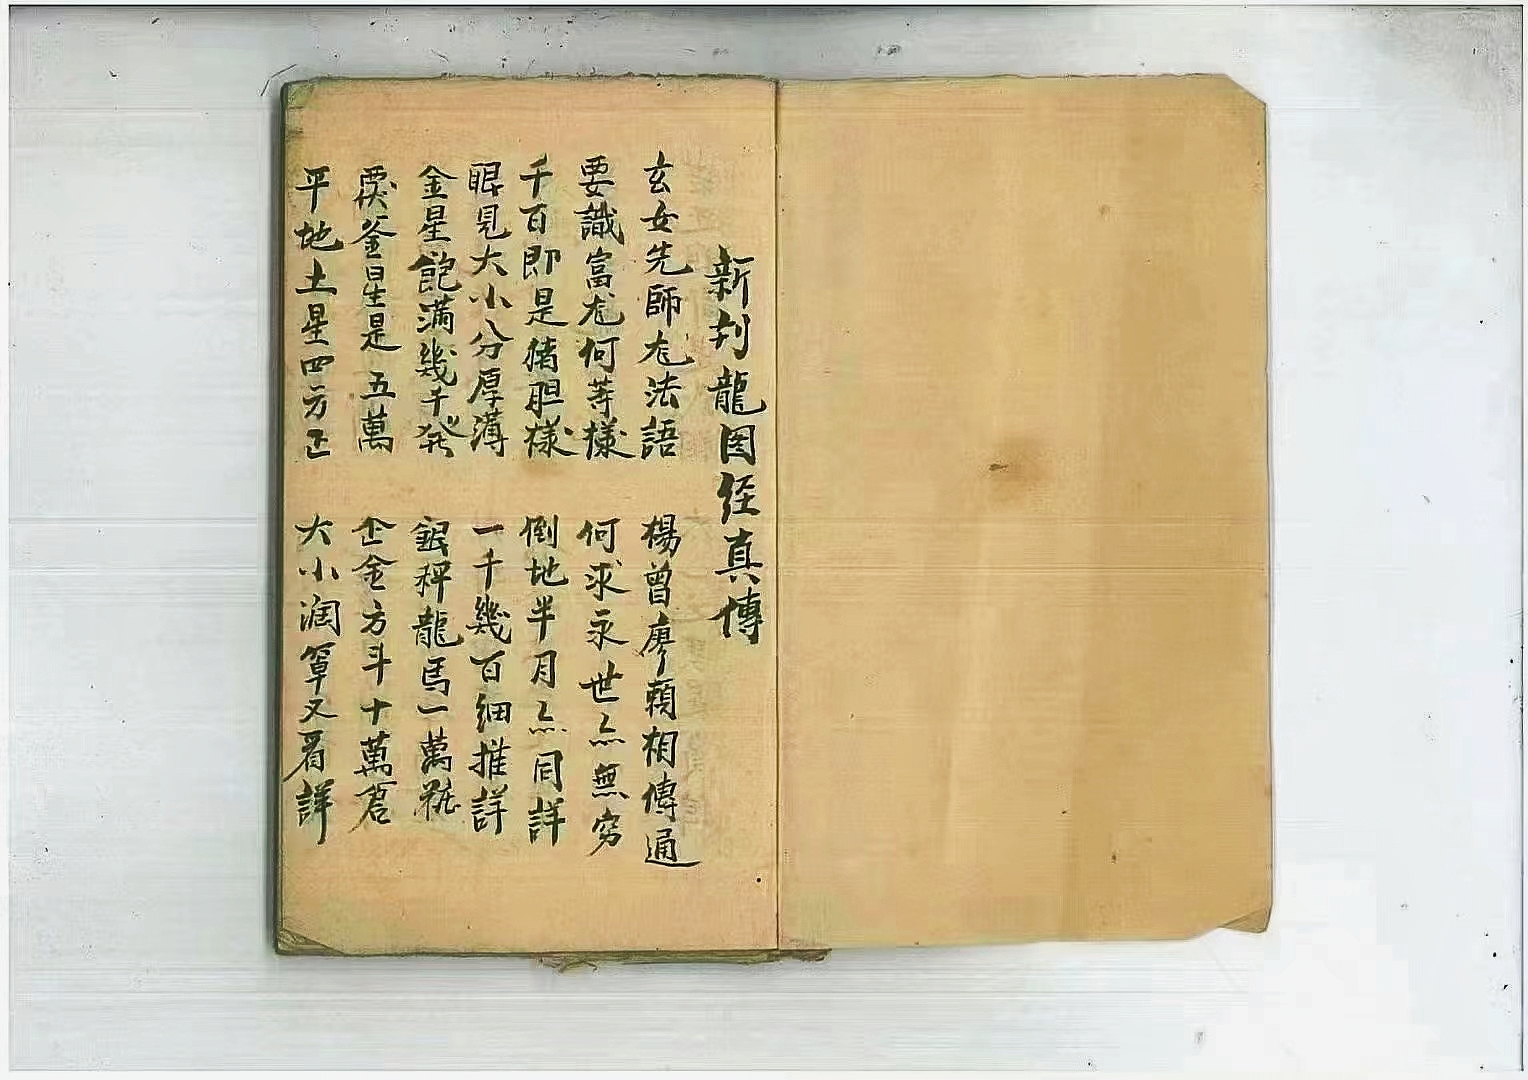 新刋龍図経真傳
玄女先師尨法語 楊曾廖賴相傳通
要識富尨何等樣 何求永世亦無穷
千百即是猪胆樣 倒地半月亦同詳
眼見大小分厚薄 一千幾百细推詳
金星飽滿幾千發 銀秤龍馬一萬粧
覆釜星是五萬 金方斗十萬君
平地土星四方正 大小润窄又看詳